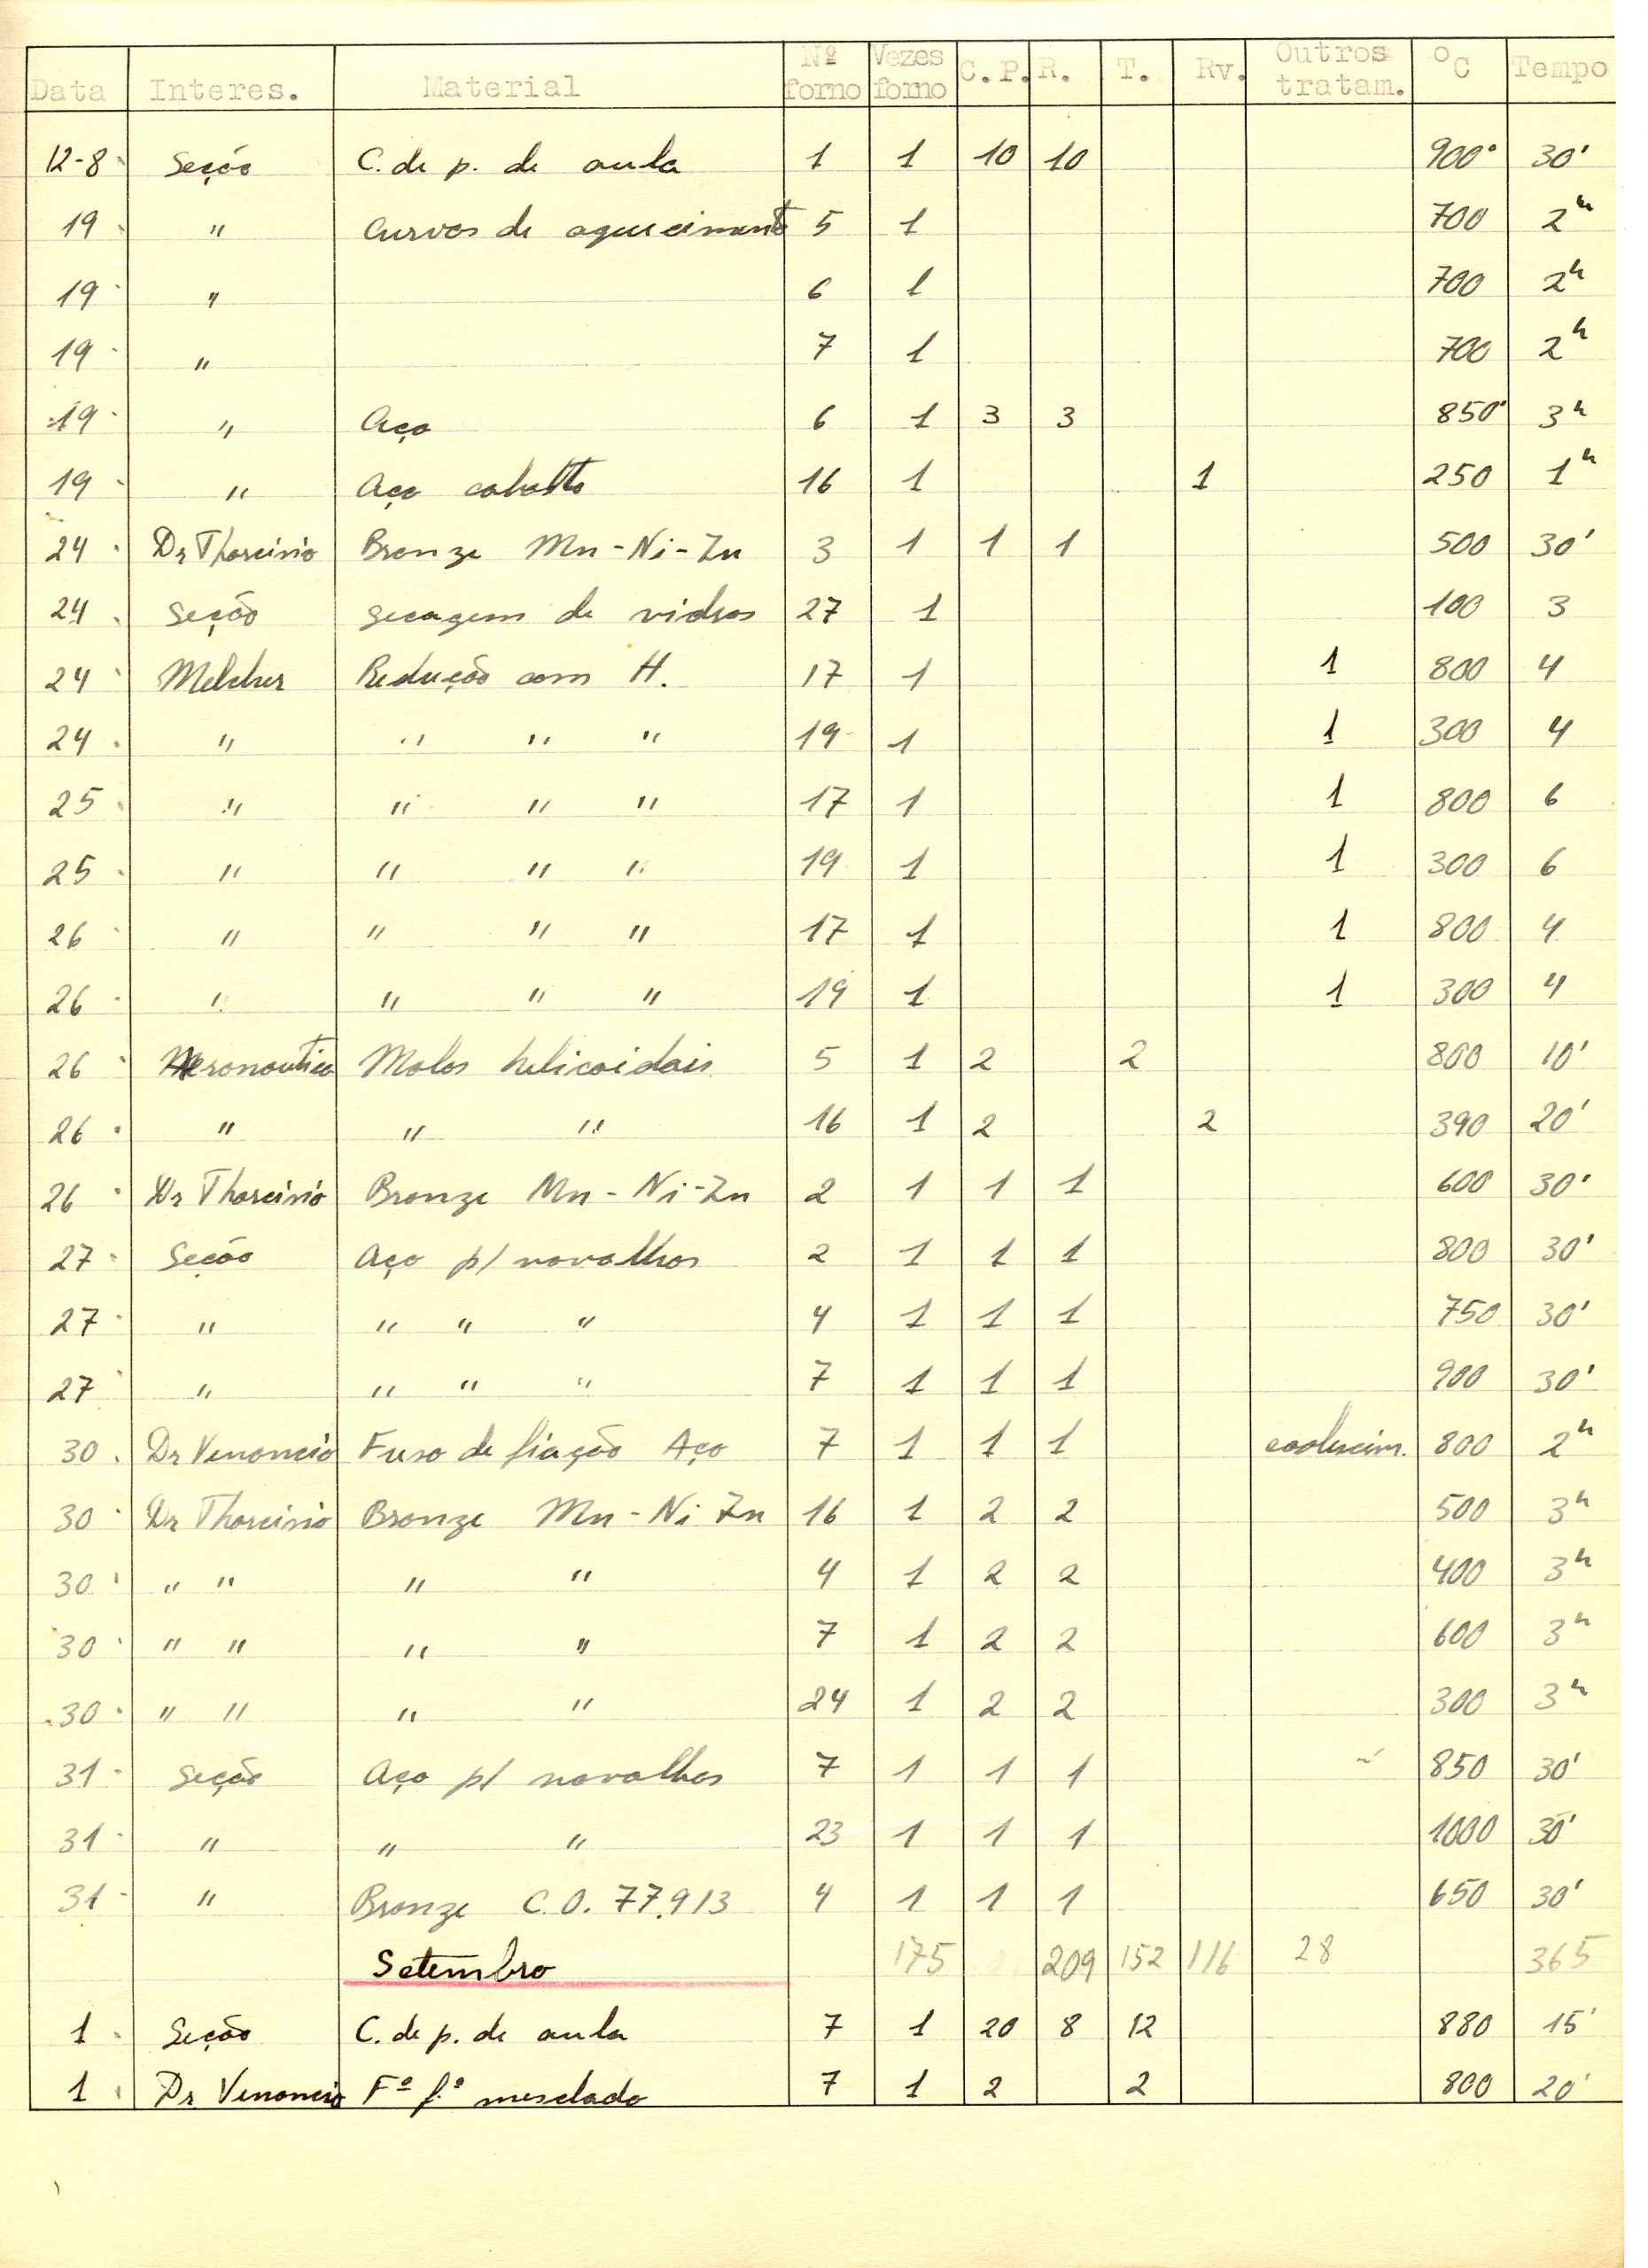 Data Interes. Material Nº forno Vezes forno C.P. R. T. Rv. Outros tratam. ºC Tempo
12-8 Seção C. de p. de aula 1 1 10 10 900° 30'
19 " Curvas de aquecimento 5 1 700 2h
19 " 6 1 700 2h
19 " 7 1 700 2h
19 " Aço 6 1 3 3 850° 3h
19 " Aço cobalto 16 1 1 250 1h
24 Dr Tharcisio Bronze Mn-Ni-Zn 3 1 1 1 500 30'
24 Seção secagem de vidros 27 1 100 3
24 Melcher Redução com H. 17 1 1 800 4
24 " " " " 19 1 1 300 4
25 " " " " 17 1 1 800 6
25 " " " " 19 1 1 300 6
26 " " " " 17 1 1 800 4
26 " " " " 19 1 1 300 4
26 Aeronautica Molas helicoidais 5 1 2 2 800 10'
26 " " " 16 1 2 2 390 20'
26 Dr Tharcisio Bronze Mn-Ni-Zn 2 1 1 1 600 30'
27 Seção Aço p/ navalhas 2 1 1 1 800 30'
27 " " " " 4 1 1 1 750 30'
27 " " " " 7 1 1 1 900 30'
30 Dr Venancio Fuso de fiação Aço 7 1 1 1 coalescim. 800 2h
30 Dr Tharcisio Bronze Mn-Ni Zn 16 1 2 2 500 3h
30 " " " " 4 1 2 2 400 3h
30 " " " " 7 1 2 2 600 3h
30 " " " " 24 1 2 2 300 3h
31 Seção Aço p/ navalhas 7 1 1 1 850 30'
31 " " " 23 1 1 1 1000 30'
31 " Bronze C.O. 77.913 4 1 1 1 650 30'
Setembro 175 209 152 116 28 365
1 Seção C. de p. de aula 7 1 20 8 12 880 15'
1 Dr Venancio Fº fº mesclado 7 1 2 2 800 20'